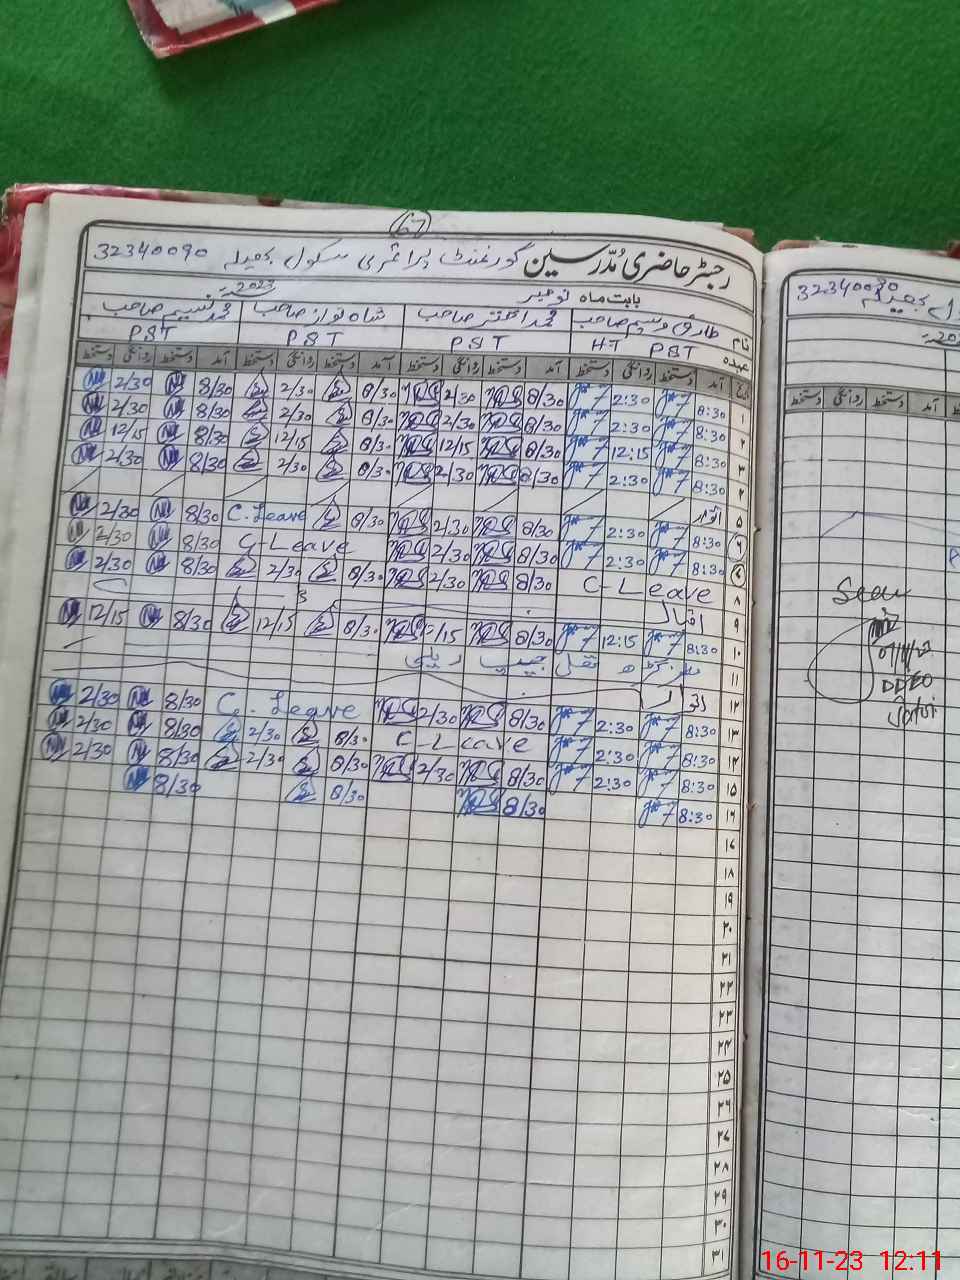 67
رجسٹر حاضری مدرسین گورنمنٹ پرائمری سکول 32340090
بابت ماہ نومبر 2023ء
نام طارق وسیم صاحب محمد اختر صاحب شاہ نواز صاحب محمد نسیم صاحب
عہدہ PST HT PST PST PST
تاریخ آمد دستخط روانگی دستخط آمد دستخط روانگی دستخط آمد دستخط روانگی دستخط آمد دستخط روانگی دستخط
۱ 8:30 2:30 8/30 2/30 8/30 2/30 8/30 2/30
۲ 8:30 2:30 8/30 2/30 8/30 2/30 8/30 2/30
۳ 8:30 12:15 8/30 12/15 8/30 12/15 8/30 12/15
۴ 8:30 2:30 8/30 2/30 8/30 2/30 8/30 2/30
۵ اتوار
۶ 8:30 2:30 8/30 2/30 8/30 C.Leave 8/30 2/30
۷ 8:30 2:30 8/30 2/30 C-Leave 8/30 2/30
۸ C-Leave 8/30 2/30 8/30 2/30 8/30 2/30
۹ اقبال
۱۰ 8:30 12:15 8/30 12/15 8/30 12/15 8/30 12/15
۱۱
۱۲ اتوار
۱۳ 8:30 2:30 8/30 2/30 C.Leave 8/30 2/30
۱۴ 8:30 2:30 C-Leave 8/30 2/30 8/30 2/30
۱۵ 8:30 2:30 8/30 2/30 8/30 2/30 8/30 2/30
۱۶ 8:30 8/30 8/30 8/30
۱۷
۱۸
۱۹
۲۰
۲۱
۲۲
۲۳
۲۴
۲۵
۲۶
۲۷
۲۸
۲۹
۳۰
۳۱
32340090
دستخط روانگی دستخط آمد
Seen
DDEO
16-11-23 12:11